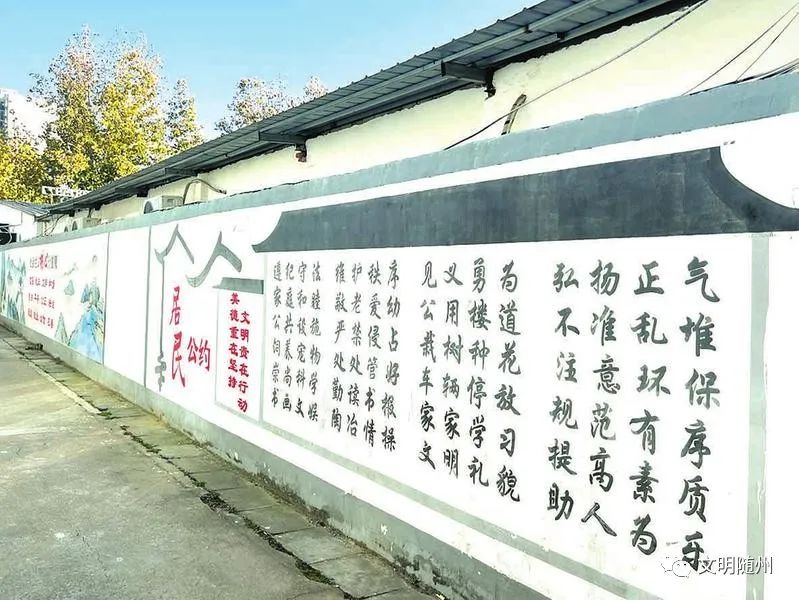 人人
居民公约
文明贵在行动
美德重在坚持
遵纪守法 维护秩序 见义勇为 弘扬正气
家庭和睦 敬老爱幼 公用楼道 不准乱堆
公共设施 严禁侵占 栽树种花 注意环保
饲养宠物 处处管好 车辆停放 规范有序
崇尚科学 勤读书报 家家学习 提高素质
书画文娱 陶冶情操 文明礼貌 助人为乐
文明随州